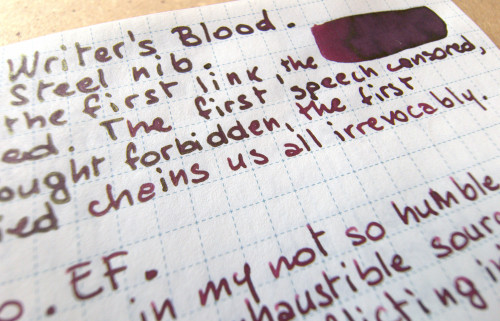 Writer's Blood.
Steel nib.
the first link, the
ed. The first speech censored,
ought forbidden, the first
ied cheins us all irrevocably.
o. EF.
in my not so humble
haustible sour
flicting in